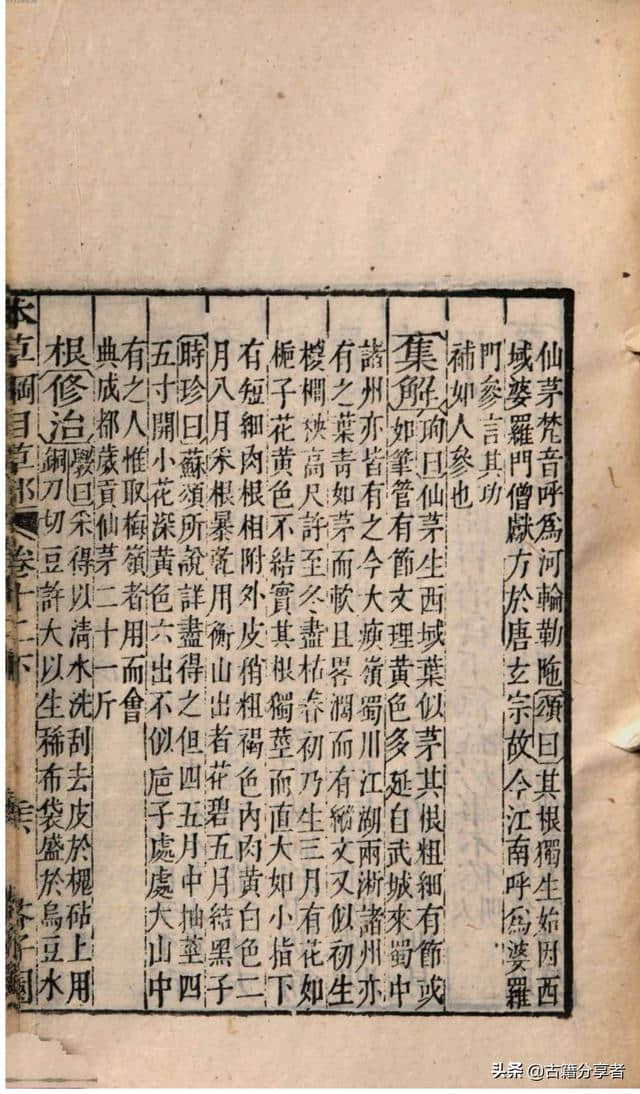 仙茅梵音呼爲河輪勒陁頌曰其根獨生始因西
域婆羅門僧獻方於唐玄宗故今江南呼爲婆羅
門參言其功
補如人參也
集解珣曰仙茅生西域葉似茅其根粗細有節或
如筆管有節文理黃色多延自武城來蜀中
諸州亦皆有之頌曰今大庾嶺蜀川江湖兩浙諸州亦
有之葉青如茅而軟且畧濶面有縱文又似初生
椶櫚秧高尺許至冬盡枯春初乃生三月有花如
梔子花黃色不結實其根獨莖而直大如小指下
有短細肉根相附外皮稍粗褐色內肉黃白色二
月八月采根暴乾用衡山出者花碧五月結黑子
時珍曰蘇頌所說詳盡得之但四五月中抽莖四
五寸開小花深黃色六出不似巵子處處大山中
有之人惟取梅嶺者用而會
典成都歲貢仙茅二十一斤
根修治斅曰采得以清水洗刮去皮於槐砧上用
銅刀切豆許大以生稀布袋盛於烏豆水
本草綱目草部 卷十二下
芥子園
頭条 @古籍分享者